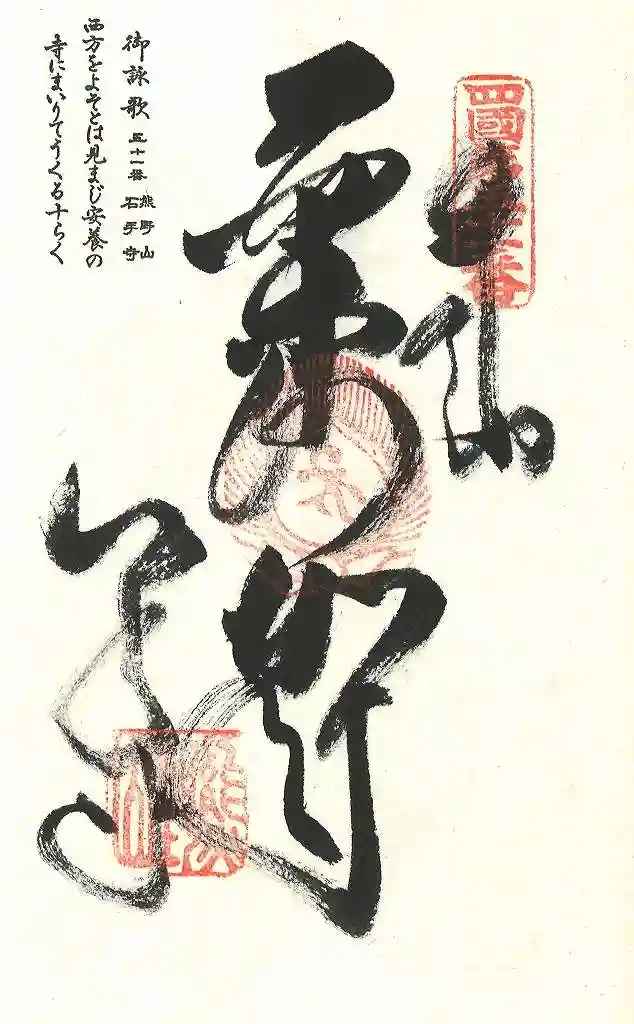 四國第五十一番
奉納
薬師
御詠歌 五十一番 熊野山 石手寺
西方をよそとは見まじ安養の
寺にまいりてうくる十らく
石手寺